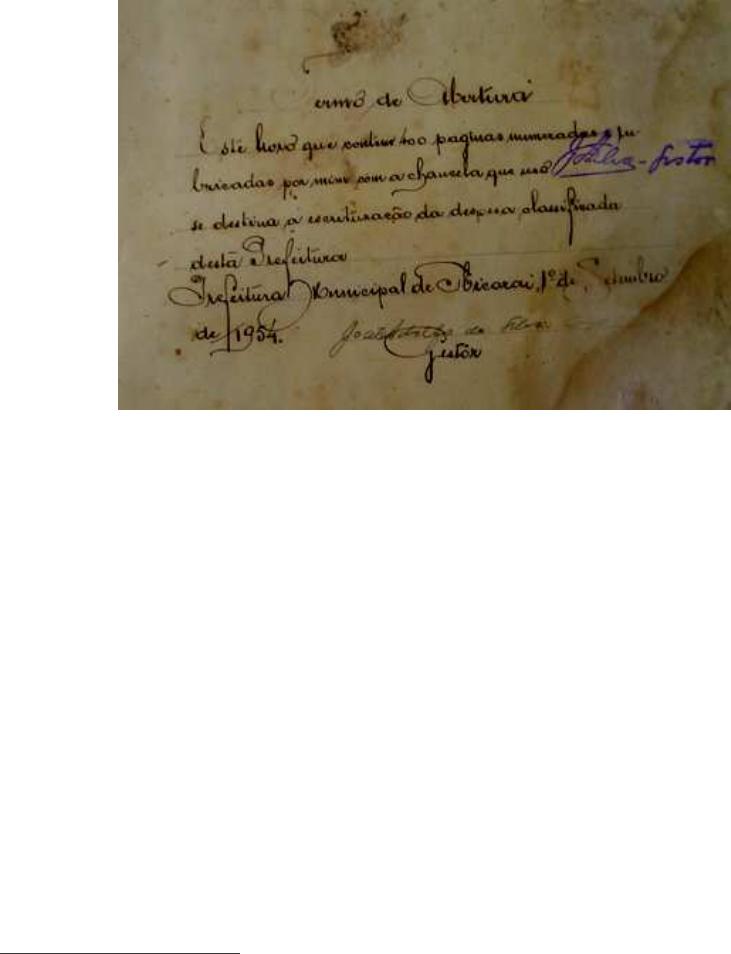 Termo de Abertura
Este livro que contem 400 paginas numeradas e ru-
bricadas por mim com a chancela que uso JSilva - Gestor
se destina a escrituração da despesa classificada
desta Prefeitura
Prefeitura Municipal de Ibicarai, 1º de Setembro
de 1954. da Silva
Gestôr